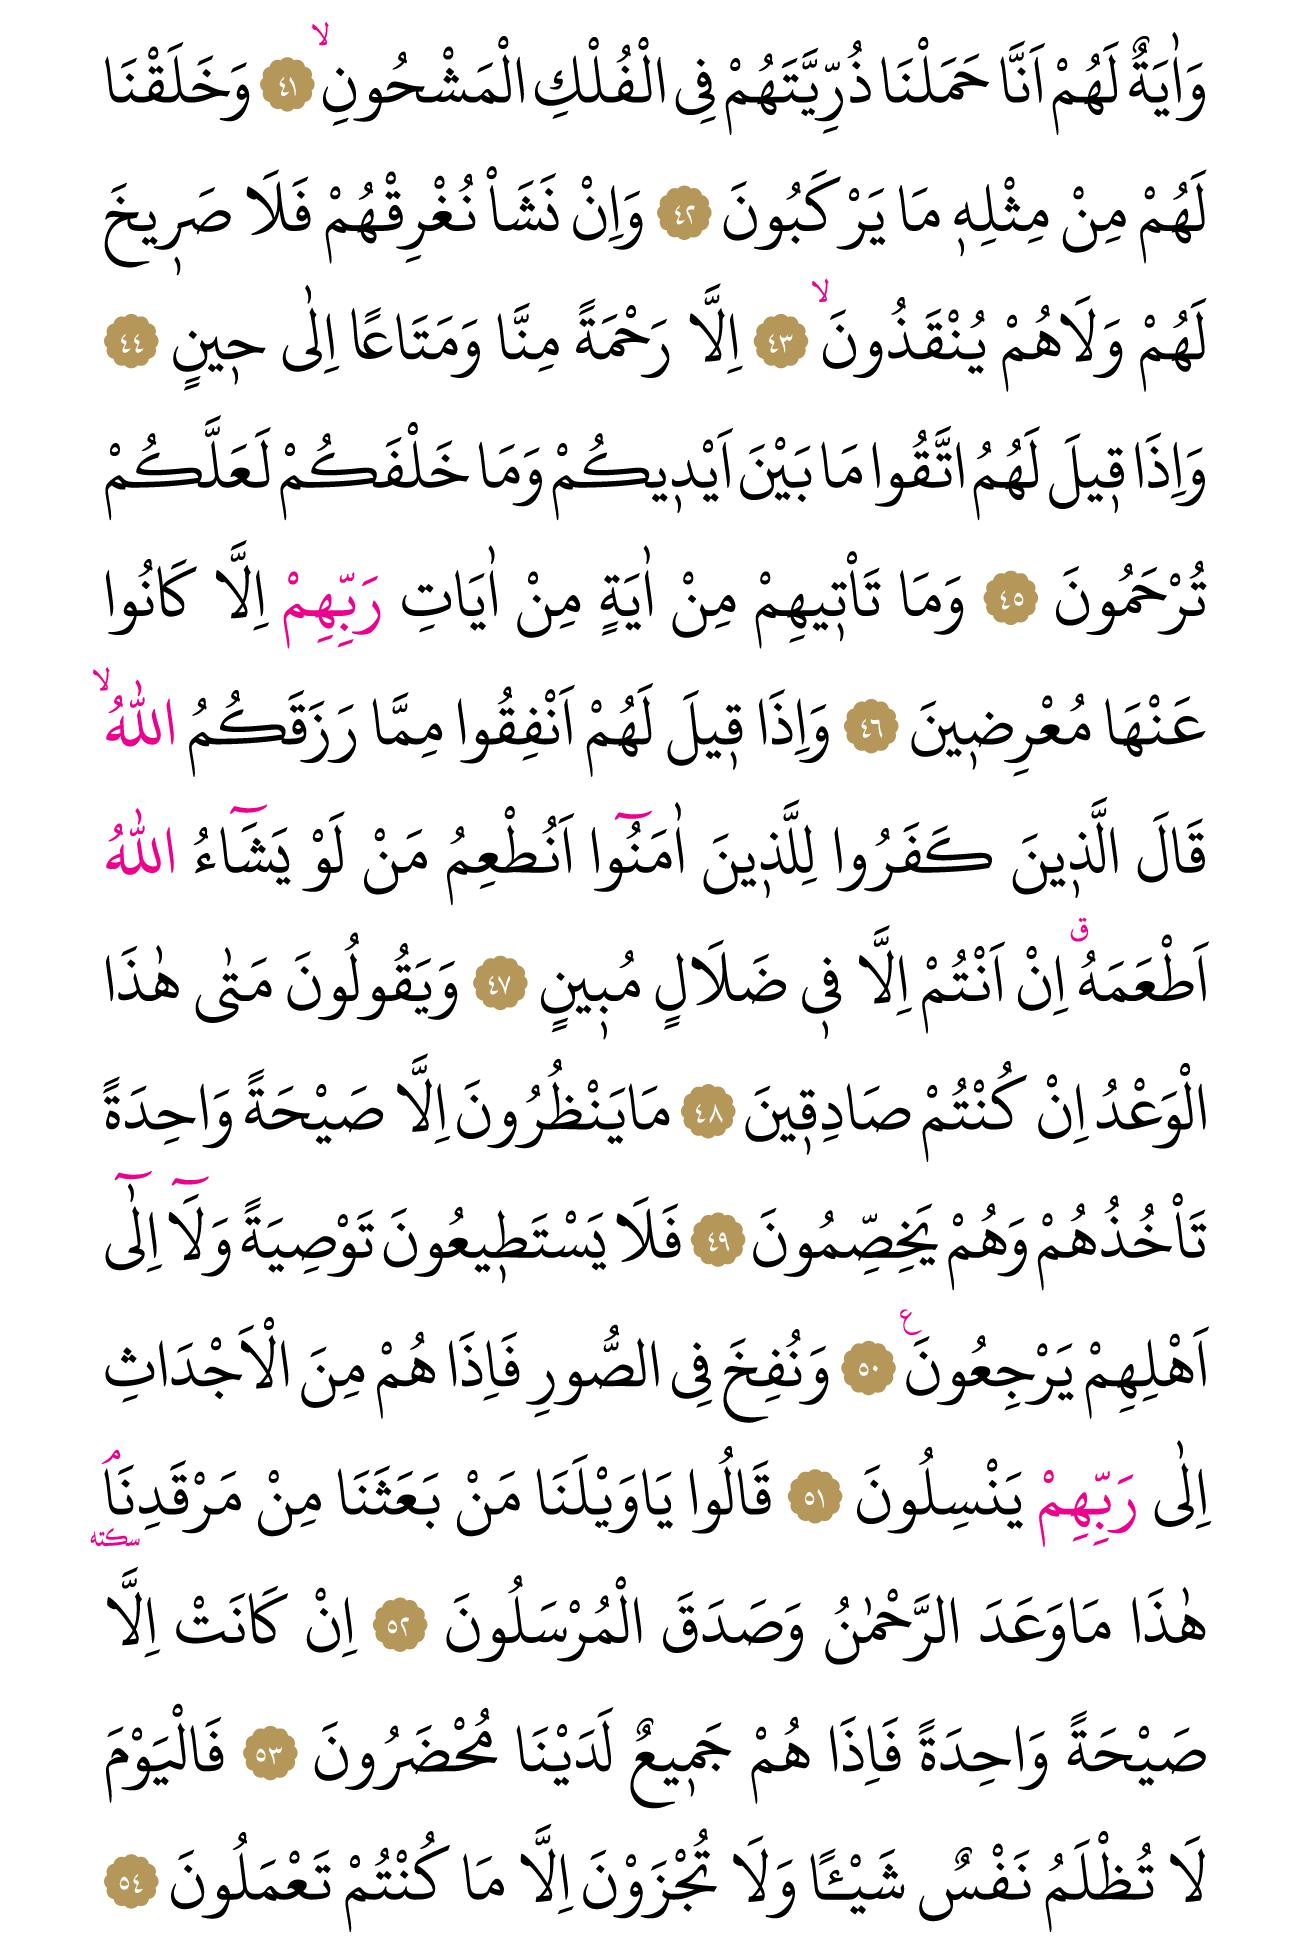 وَاٰيَةٌ لَهُمْ اَنَّا حَمَلْنَا ذُرِّيَّتَهُمْ فِى الْفُلْكِ الْمَشْحُونِۙ ﴿٤١﴾ وَخَلَقْنَا
لَهُمْ مِنْ مِثْلِهٖ مَا يَرْكَبُونَ ﴿٤٢﴾ وَاِنْ نَشَأْ نُغْرِقْهُمْ فَلَا صَرٖيخَ
لَهُمْ وَلَاهُمْ يُنْقَذُونَۙ ﴿٤٣﴾ اِلَّا رَحْمَةً مِنَّا وَمَتَاعًا اِلٰى حٖينٍ ﴿٤٤﴾
وَاِذَا قٖيلَ لَهُمُ اتَّقُوا مَا بَيْنَ اَيْدٖيكُمْ وَمَا خَلْفَكُمْ لَعَلَّكُمْ
تُرْحَمُونَ ﴿٤٥﴾ وَمَا تَاْتٖيهِمْ مِنْ اٰيَةٍ مِنْ اٰيَاتِ رَبِّهِمْ اِلَّا كَانُوا
عَنْهَا مُعْرِضٖينَ ﴿٤٦﴾ وَاِذَا قٖيلَ لَهُمْ اَنْفِقُوا مِمَّا رَزَقَكُمُ اللّٰهُۙ
قَالَ الَّذٖينَ كَفَرُوا لِلَّذٖينَ اٰمَنُٓوا اَنُطْعِمُ مَنْ لَوْ يَشَٓاءُ اللّٰهُ
اَطْعَمَهُ ق اِنْ اَنْتُمْ اِلَّا فٖى ضَلَالٍ مُبٖينٍ ﴿٤٧﴾ وَيَقُولُونَ مَتٰى هٰذَا
الْوَعْدُ اِنْ كُنْتُمْ صَادِقٖينَ ﴿٤٨﴾ مَايَنْظُرُونَ اِلَّا صَيْحَةً وَاحِدَةً
تَاْخُذُهُمْ وَهُمْ يَخِصِّمُونَ ﴿٤٩﴾ فَلَا يَسْتَطٖيعُونَ تَوْصِيَةً وَلَٓا اِلٰٓى
اَهْلِهِمْ يَرْجِعُونَ ع ﴿٥٠﴾ وَنُفِخَ فِى الصُّورِ فَاِذَا هُمْ مِنَ الْاَجْدَاثِ
اِلٰى رَبِّهِمْ يَنْسِلُونَ ﴿٥١﴾ قَالُوا يَاوَيْلَنَا مَنْ بَعَثَنَا مِنْ مَرْقَدِنَاۢ سكته
هٰذَا مَاوَعَدَ الرَّحْمٰنُ وَصَدَقَ الْمُرْسَلُونَ ﴿٥٢﴾ اِنْ كَانَتْ اِلَّا
صَيْحَةً وَاحِدَةً فَاِذَا هُمْ جَمٖيعٌ لَدَيْنَا مُحْضَرُونَ ﴿٥٣﴾ فَالْيَوْمَ
لَا تُظْلَمُ نَفْسٌ شَيْـًٔا وَلَا تُجْزَوْنَ اِلَّا مَا كُنْتُمْ تَعْمَلُونَ ﴿٥٤﴾